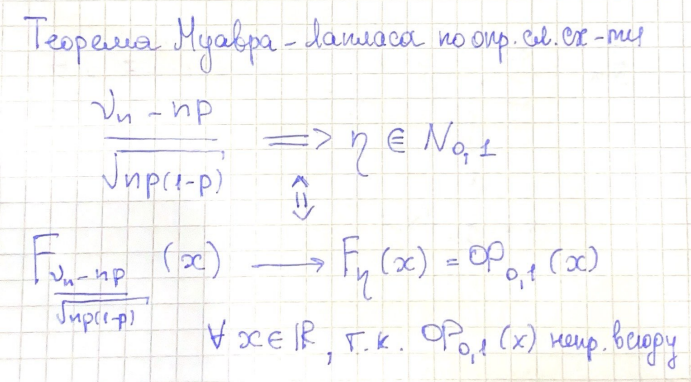 Теорема Муавра-Лапласа по опр. сл. сх-ти
(νₙ - np) / √(np(1-p)) ⟹ η ∈ N₀,₁
⇕
F_{(νₙ - np) / √(np(1-p))} (x) ⟶ F_η (x) = Φ₀,₁ (x)
∀ x ∈ ℝ, т.к. Φ₀,₁ (x) непр. всюду